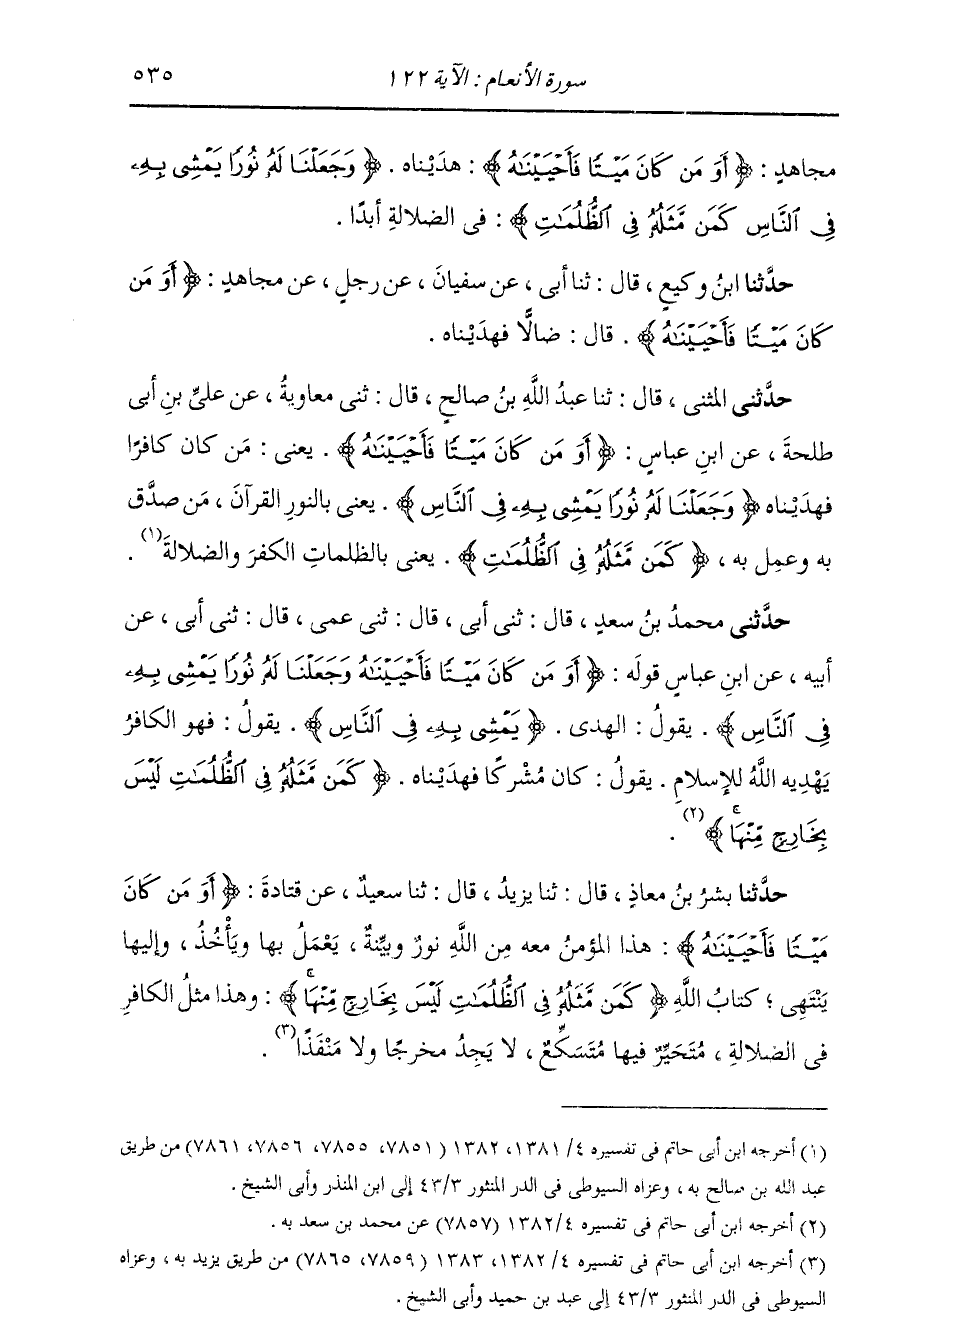 سورة الأنعام : الآية ١٢٢
٥٣٥
مجاهدٍ : ﴿ أَوَ مَن كَانَ مَيْتًا فَأَحْيَيْنَاهُ ﴾ : هدَيْناه . ﴿ وَجَعَلْنَا لَهُ نُورًا يَمْشِى بِهِۦ
فِى ٱلنَّاسِ كَمَن مَّثَلُهُ فِى ٱلظُّلُمَٰتِ ﴾ : فى الضلالةِ أبدًا .
حدَّثنا ابنُ وكيعٍ ، قال : ثنا أبى ، عن سفيانَ ، عن رجلٍ ، عن مجاهدٍ : ﴿ أَوَ مَن
كَانَ مَيْتًا فَأَحْيَيْنَاهُ ﴾ . قال : ضالًّا فهدَيْناه .
حدَّثنى المثنى ، قال : ثنا عبدُ اللَّهِ بنُ صالحٍ ، قال : ثنى معاويةُ ، عن علىِّ بنِ أبى
طلحةَ ، عن ابنِ عباسٍ : ﴿ أَوَ مَن كَانَ مَيْتًا فَأَحْيَيْنَاهُ ﴾ . يعنى : مَن كان كافرًا
فهدَيْناه ﴿ وَجَعَلْنَا لَهُ نُورًا يَمْشِى بِهِۦ فِى ٱلنَّاسِ ﴾ . يعنى بالنورِ القرآنَ ، مَن صدَّق
به وعمِل به ، ﴿ كَمَن مَّثَلُهُ فِى ٱلظُّلُمَٰتِ ﴾ . يعنى بالظلماتِ الكفرَ والضلالةَ(١) .
حدَّثنى محمدُ بنُ سعدٍ ، قال : ثنى أبى ، قال : ثنى عمى ، قال : ثنى أبى ، عن
أبيه ، عن ابنِ عباسٍ قولَه : ﴿ أَوَ مَن كَانَ مَيْتًا فَأَحْيَيْنَاهُ وَجَعَلْنَا لَهُ نُورًا يَمْشِى بِهِۦ
فِى ٱلنَّاسِ ﴾ . يقولُ : الهدى . ﴿ يَمْشِى بِهِۦ فِى ٱلنَّاسِ ﴾ . يقولُ : فهو الكافرُ
يَهْدِيه اللَّهُ للإسلامِ . يقولُ : كان مُشْركًا فهدَيْناه . ﴿ كَمَن مَّثَلُهُ فِى ٱلظُّلُمَٰتِ لَيْسَ
بِخَارِجٍ مِّنْهَا ﴾(٢) .
حدَّثنا بشرُ بنُ معاذٍ ، قال : ثنا يزيدُ ، قال : ثنا سعيدٌ ، عن قتادةَ : ﴿ أَوَ مَن كَانَ
مَيْتًا فَأَحْيَيْنَاهُ ﴾ : هذا المؤمنُ معه مِن اللَّهِ نورٌ وبيِّنةٌ ، يَعْمَلُ بها ويَأْخُذُ ، وإليها
يَنْتَهِى ؛ كتابُ اللَّهِ ﴿ كَمَن مَّثَلُهُ فِى ٱلظُّلُمَٰتِ لَيْسَ بِخَارِجٍ مِّنْهَا ﴾ : وهذا مثلُ الكافرِ
فى الضلالةِ ، مُتَحَيِّرٌ فيها مُتَسَكِّعٌ ، لا يَجِدُ مخرجًا ولا مَنْفَذًا(٣) .
(١) أخرجه ابن أبى حاتم فى تفسيره ٤/ ١٣٨١، ١٣٨٢ ( ٧٨٥١، ٧٨٥٥، ٧٨٥٦، ٧٨٦١) من طريق
عبد الله بن صالح به ، وعزاه السيوطى فى الدر المنثور ٤٣/٣ إلى ابن المنذر وأبى الشيخ .
(٢) أخرجه ابن أبى حاتم فى تفسيره ١٣٨٢/٤ (٧٨٥٧) عن محمد بن سعد به .
(٣) أخرجه ابن أبى حاتم فى تفسيره ٤/ ١٣٨٢، ١٣٨٣ ( ٧٨٥٩، ٧٨٦٥) من طريق يزيد به ، وعزاه
السيوطى فى الدر المنثور ٤٣/٣ إلى عبد بن حميد وأبى الشيخ .